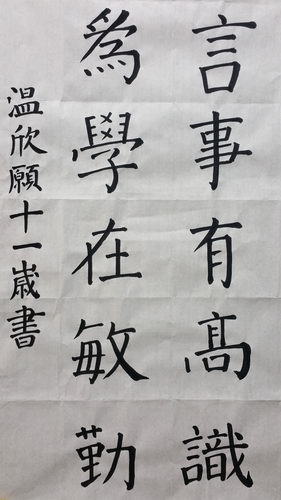 言事有高識
為學在敏勤
溫欣願十一歲書